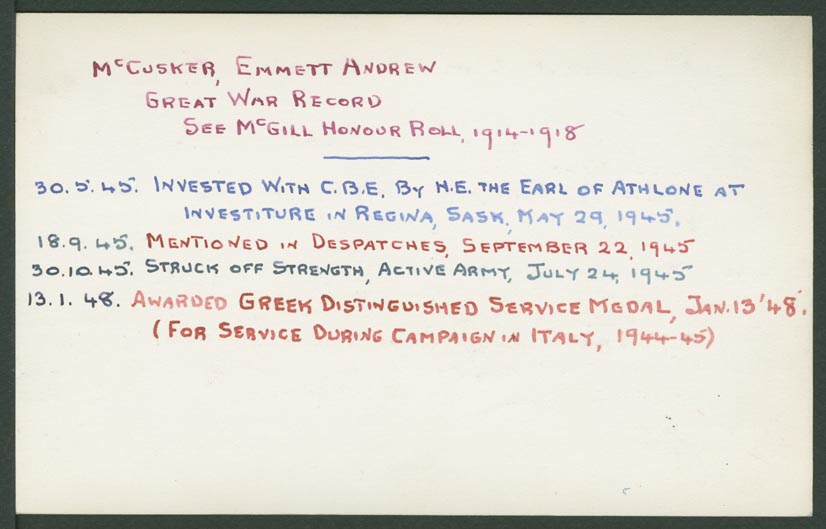 McCusker, Emmett Andrew
Great War Record
See McGill Honour Roll, 1914-1918
30.5.45. Invested With C.B.E. By H.E. the Earl of Athlone at
Investiture in Regina, Sask, May 29, 1945.
18.9.45. Mentioned in Despatches, September 22, 1945
30.10.45. Struck off Strength, Active Army, July 24, 1945
13.1.48. Awarded Greek Distinguished Service Medal, Jan. 13 '48.
(For Service During Campaign in Italy, 1944-45)